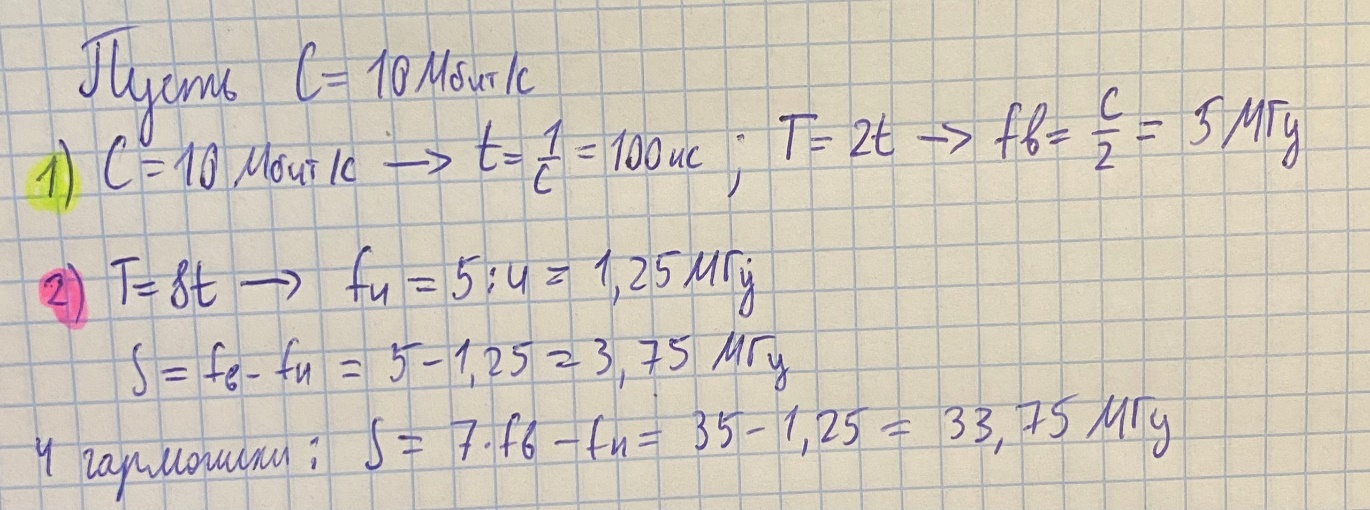 Пусть C = 10 Мбит/с
1) C = 10 Мбит/с → t = 1/C = 100 нс ; T = 2t → fв = C/2 = 5 МГц
2) T = 8t → fн = 5:4 = 1,25 МГц
S = fв - fн = 5 - 1,25 = 3,75 МГц
4 гармошики: S = 7·fв - fн = 35 - 1,25 = 33,75 МГц